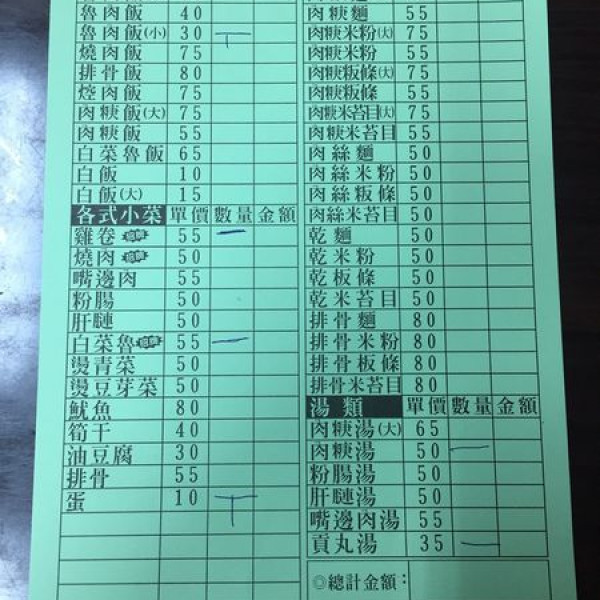 魯肉飯 40
魯肉飯(小) 30
燒肉飯 75
排骨飯 80
焢肉飯 75
肉焿飯(大) 75
肉焿飯 55
白菜魯飯 65
白飯 10
白飯(大) 15
各式小菜 單價 數量 金額
雞卷 55 一
燒肉 50
嘴邊肉 55
粉腸 50
肝𦟪 50
白菜魯 55 一
燙青菜 50
燙豆芽菜 50
魷魚 80
筍干 40
油豆腐 30
排骨 55
蛋 10
肉焿麵 55
肉焿米粉(大) 75
肉焿米粉 55
肉焿粄條(大) 75
肉焿粄條 55
肉焿米苔目(大) 75
肉焿米苔目 55
肉絲麵 50
肉絲米粉 50
肉絲粄條 50
肉絲米苔目 50
乾麵 50
乾米粉 50
乾板條 50
乾米苔目 50
排骨麵 80
排骨米粉 80
排骨板條 80
排骨米苔目 80
湯類 單價 數量 金額
肉焿湯(大) 65
肉焿湯 50 一
粉腸湯 50
肝𦟪湯 50
嘴邊肉湯 55
貢丸湯 35 一
◎總計金額：